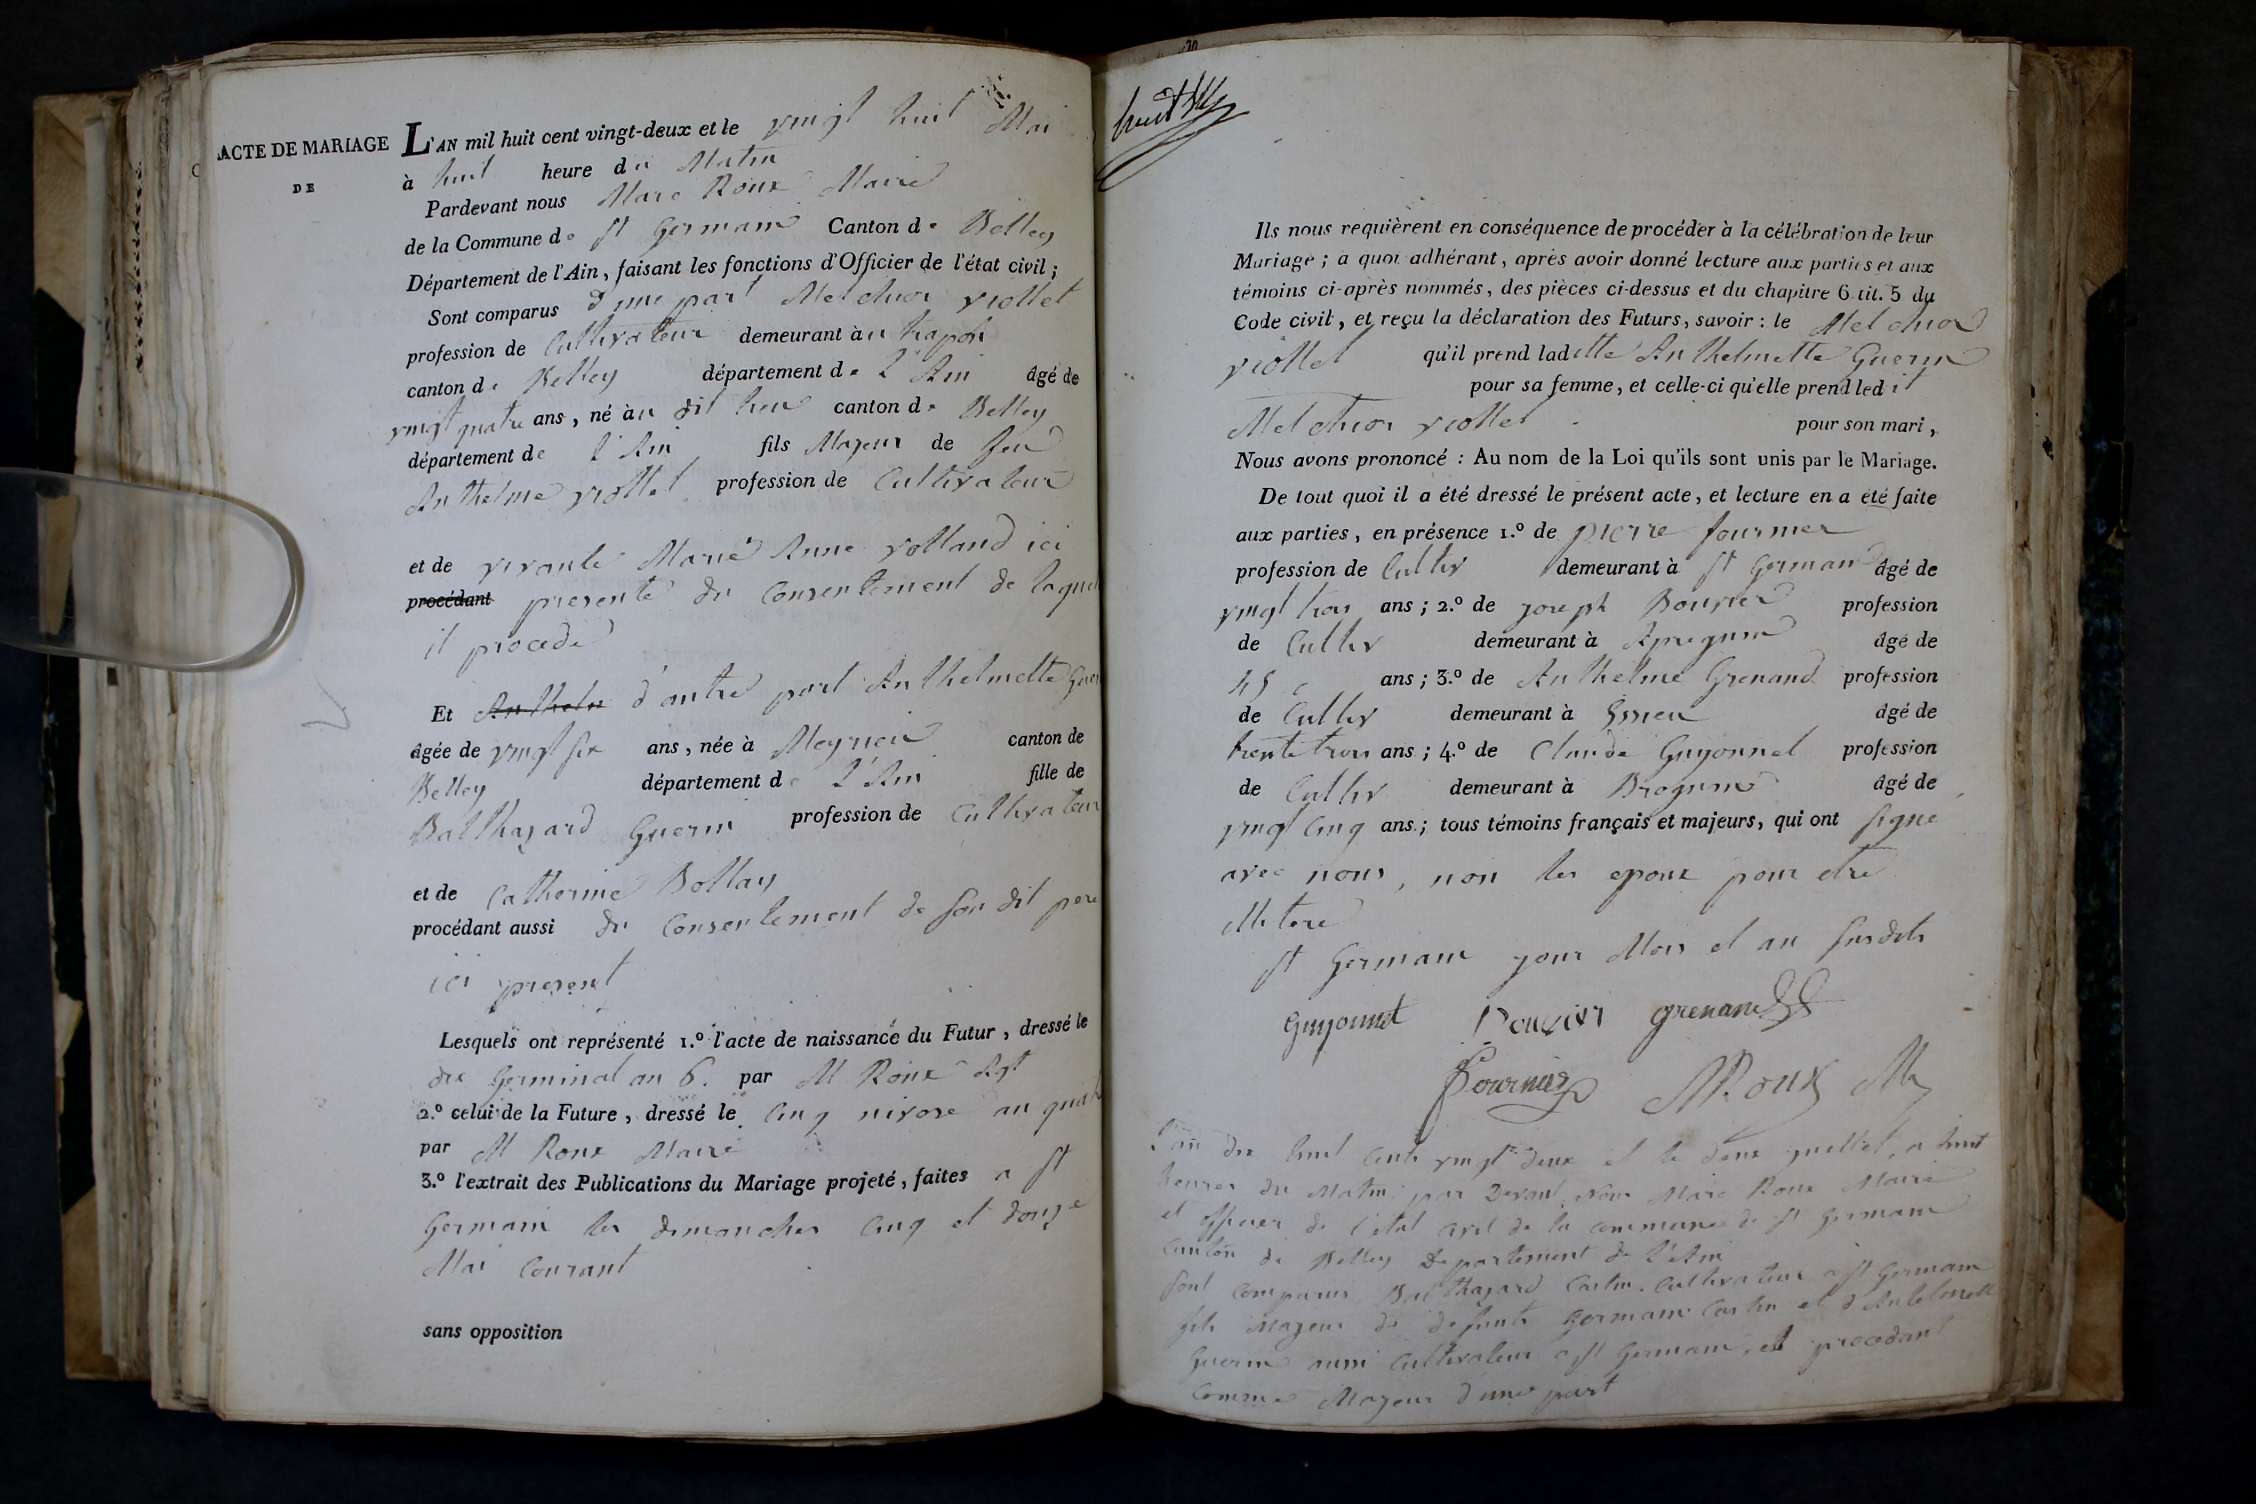 ACTE DE MARIAGE
DE
L'AN mil huit cent vingt-deux et le vingt huit Mai
à huit heure du Matin
Pardevant nous Marc Roux Maire
de la Commune de St Germain Canton de Belley
Département de l'Ain, faisant les fonctions d'Officier de l'état civil ;
Sont comparus d'une part Melchior viollet
profession de Cultivateur demeurant à
canton de Belley département de l'Ain âgé de
vingt quatre ans, né au dit lieu canton de Belley
département de l'Ain fils Majeur de feu
Anthelme viollet profession de Cultivateur
et de vivante Marie Anne volland ici
procédant presente du Consentement de laquel
il procede
Et d'autre part Anthelmette Guer
âgée de vingt six ans, née à Meyrieu canton de
Belley département de l'Ain fille de
Balthazard Guerin profession de Cultivateur
et de Catherine Bollay
procédant aussi du Consentement de son dit pere
ici present
Lesquels ont représenté 1.º l'acte de naissance du Futur, dressé le
dix Germinal an 6. par M Roux Agt
2.º celui de la Future, dressé le cinq nivose an quat
par M Roux Maire
3.º l'extrait des Publications du Mariage projeté, faites a St
Germain les dimanches Cinq et douze
Mai Courant
sans opposition
huit
Ils nous requièrent en conséquence de procéder à la célébration de leur
Mariage ; a quoi adhérant, après avoir donné lecture aux parties et aux
témoins ci-après nommés, des pièces ci-dessus et du chapitre 6 tit. 5 du
Code civil, et reçu la déclaration des Futurs, savoir : le Melchior
viollet qu'il prend laditte Anthelmette Guerin
pour sa femme, et celle-ci qu'elle prend ledit
Melchior viollet pour son mari,
Nous avons prononcé : Au nom de la Loi qu'ils sont unis par le Mariage.
De tout quoi il a été dressé le présent acte, et lecture en a été faite
aux parties, en présence 1.º de pierre fournier
profession de Cultiv demeurant à St Germain âgé de
vingt trois ans ; 2.º de joseph Bouvier profession
de Cultiv demeurant à Apregnin âgé de
45 ans ; 3.º de Anthelme Grenand profession
de Cultiv demeurant à Essieu âgé de
trente trois ans ; 4.º de Claude Guyonnet profession
de Cultiv demeurant à Brognin âgé de
vingt cinq ans ; tous témoins français et majeurs, qui ont signé
avec nous, non les epoux pour etre
illiteré
St Germain jour Mois et an susdits
Guyonnet Bouvier grenand
Fournier M. Roux M
l'an dix huit cents vingt deux et le deux juillet, a huit
heures du Matin par devant Nous Marc Roux Maire
et officier de l'etat civil de la commune de St Germain
Canton de Belley Departement de l'Ain
sont comparus Balthazard Costin Cultivateur a St Germain
fils Majeur de defunts Germain Costin et d'Antelmette
Guerin aussi Cultivateur a St Germain, et procedant
comme Majeur d'une part